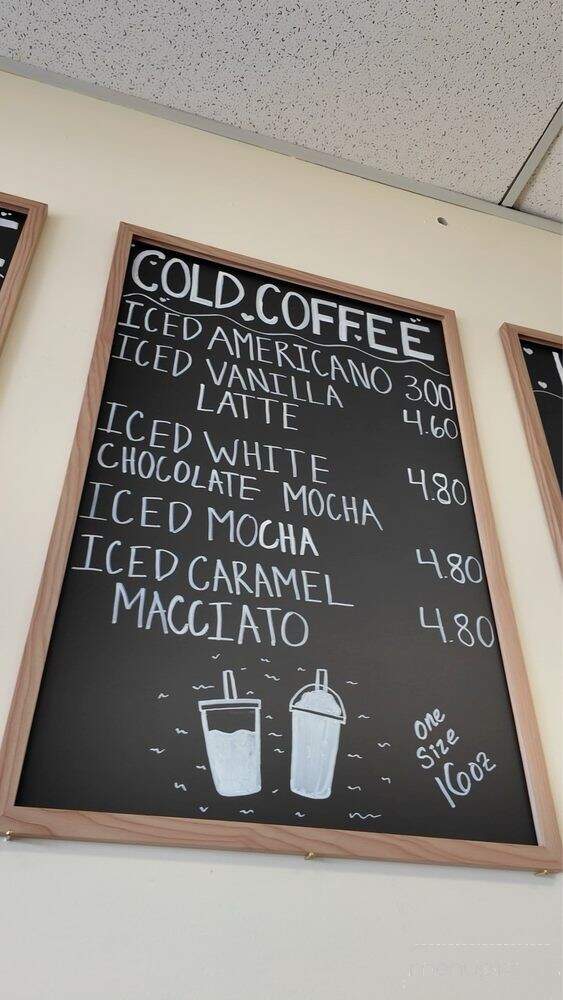 COLD COFFEE
ICED AMERICANO 3.00
ICED VANILLA
LATTE 4.60
ICED WHITE
CHOCOLATE MOCHA 4.80
ICED MOCHA 4.80
ICED CARAMEL
MACCIATO 4.80
one
size
16oz